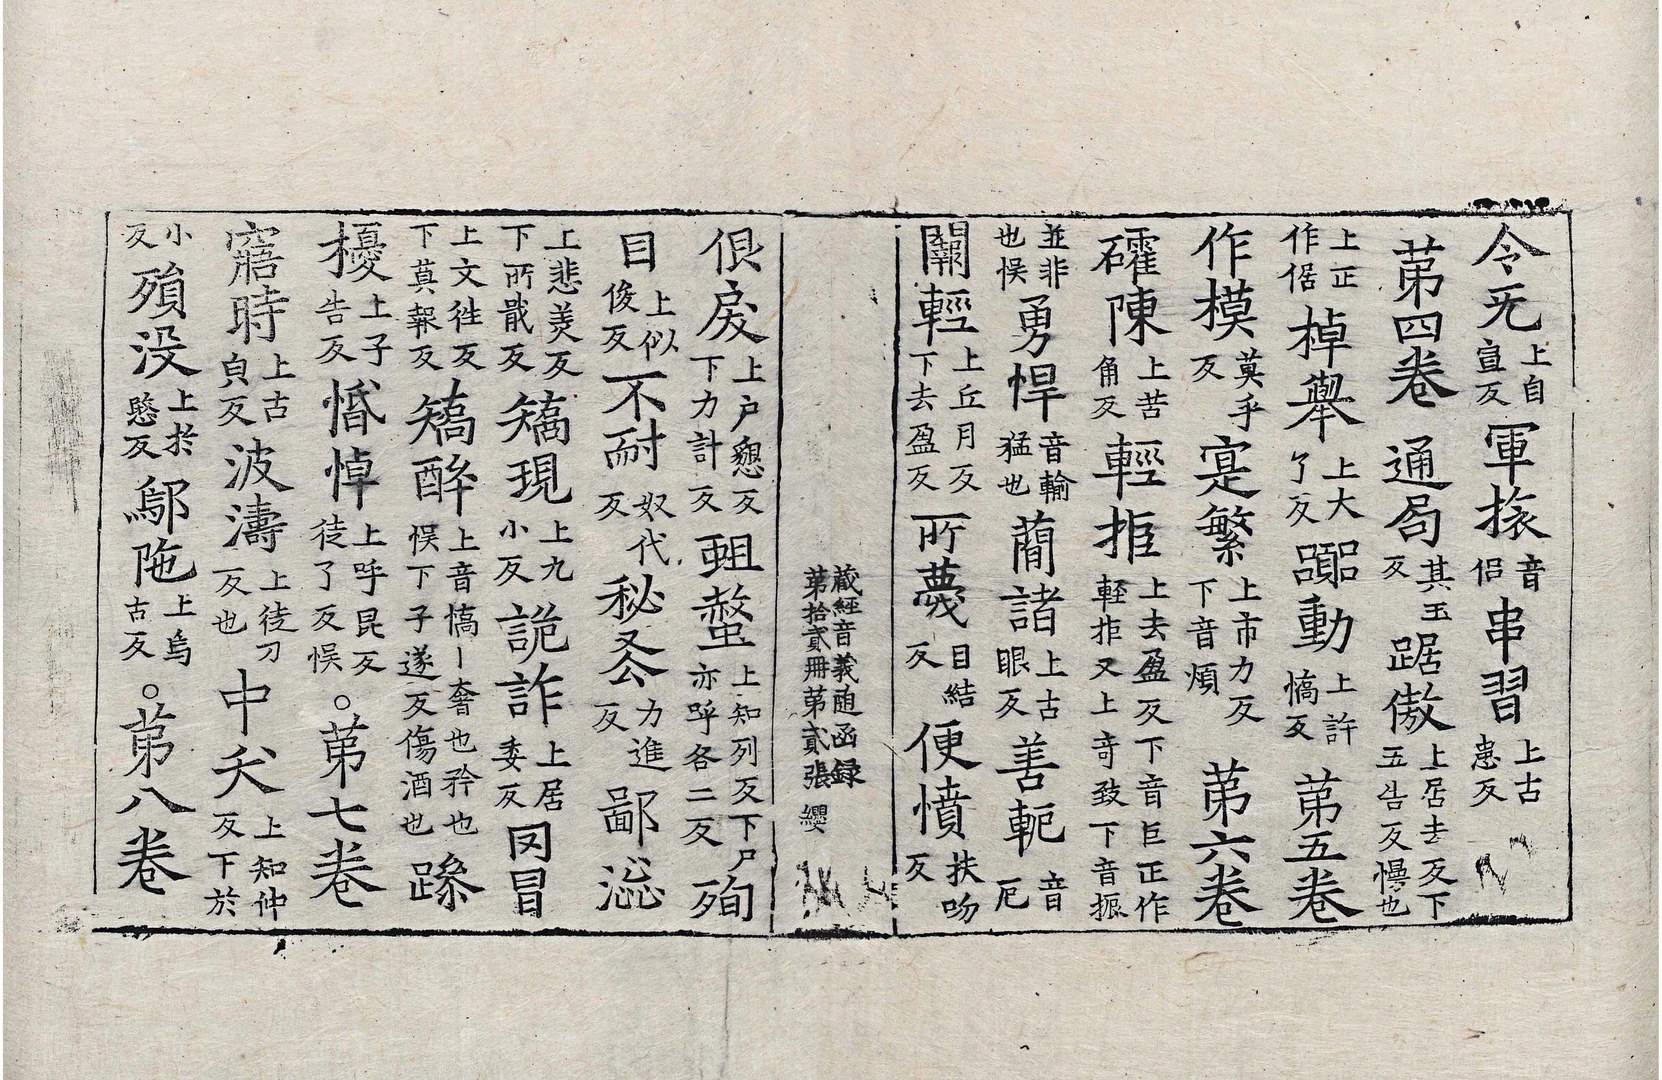 令旡上自宣反軍旅音侣串習上古患反
苐四卷通局其玉反踞傲上居去反下五告反慢也
上正作倨棹舉上大了反躁動上許憍反苐五卷
作模莫乎反寔繁上市力反下音煩苐六卷
礭陳上苦角反輕拒上去盈反下音巨正作軽拒又上竒致下音振
並非也悞勇悍音翰猛也蕳諸上古眼反善軛音厄
闕輕上丘月反下去盈反所薎目結反便憤扶吻反
藏經音義随函録
第拾貳冊第貳張 纓
佷戾上户懇反下力計反蛆螫上知列反下尸亦呼各二反殉
目上似俊反不耐奴代反秘吝力進反鄙惢
上悲美反下所戢反矯現上九小反詭詐上居委反罔冒
上文徃反下莫報反矯醉上音憍丨奢也矜也悞下子遂反傷酒也躁
擾上子告反惛悼上呼昆反徒了反悞。苐七卷
寤時上古皃反波濤上徒刀反也中夭上知仲反下於
小反殞没上扵愍反鄔陁上烏古反。苐八卷